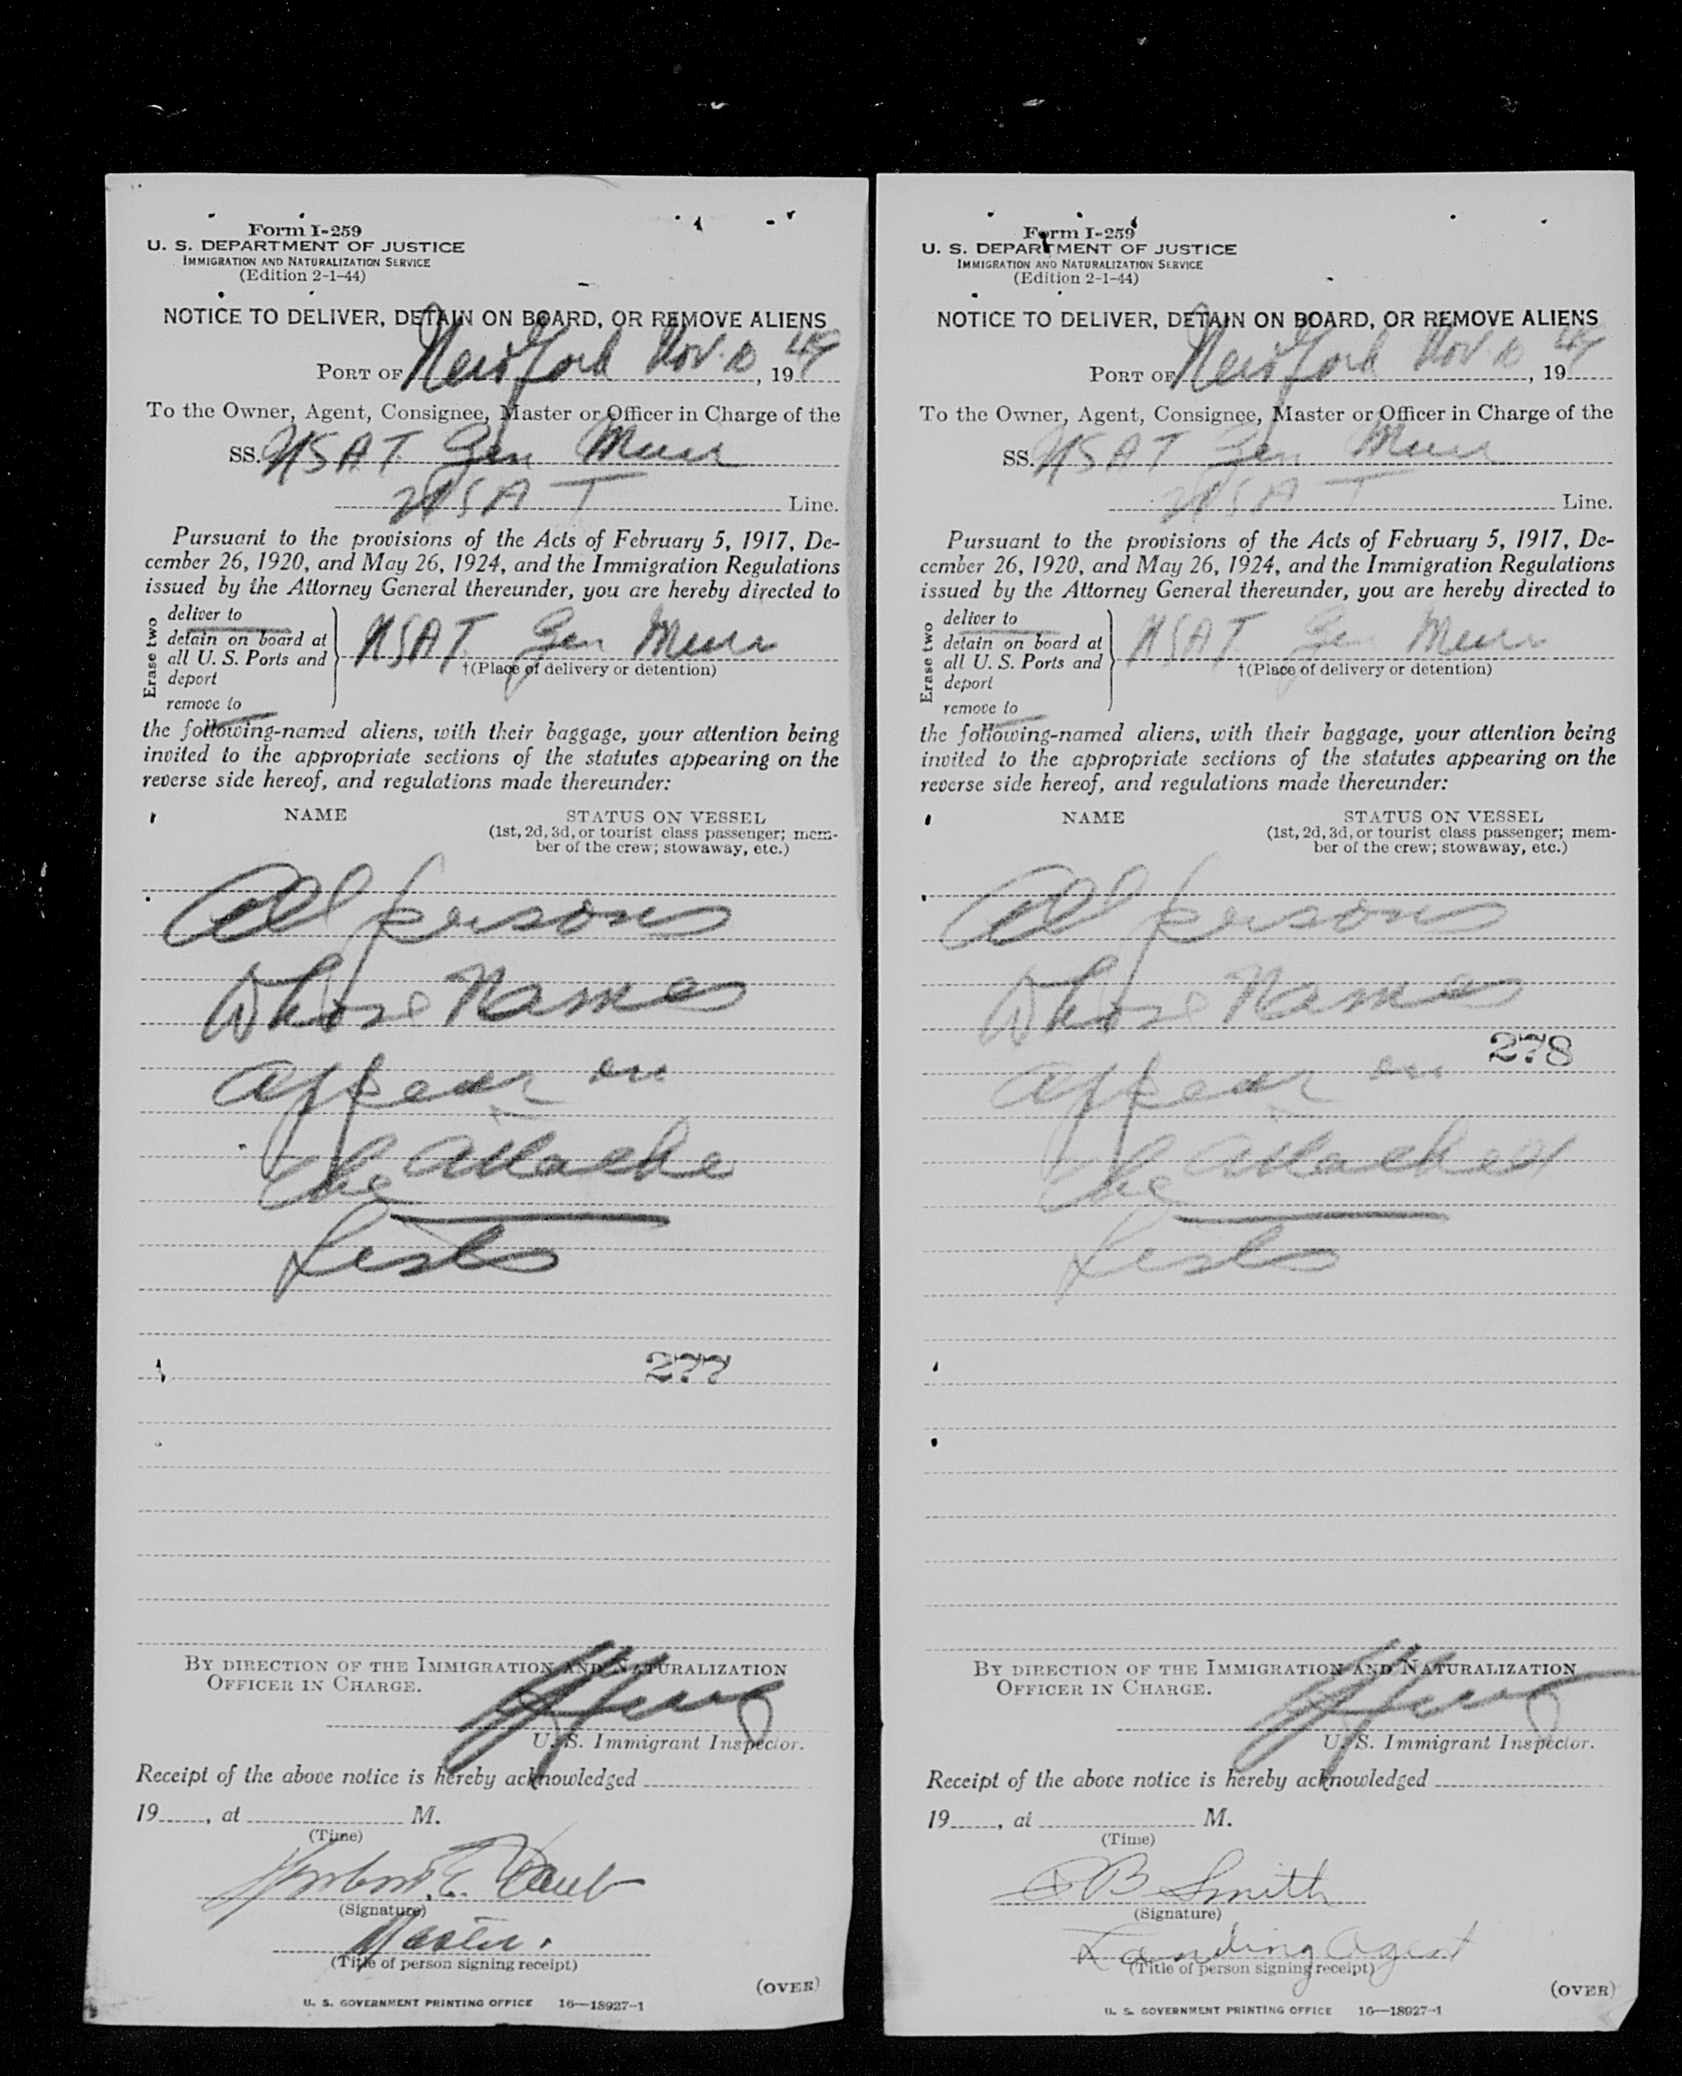 Form I-259
U. S. DEPARTMENT OF JUSTICE
IMMIGRATION AND NATURALIZATION SERVICE
(Edition 2-1-44)
NOTICE TO DELIVER, DETAIN ON BOARD, OR REMOVE ALIENS
PORT OF New York Nov. 10, 1948
To the Owner, Agent, Consignee, Master or Officer in Charge of the
SS. USAT Gen Muir
USAT Line.
Pursuant to the provisions of the Acts of February 5, 1917, De-
cember 26, 1920, and May 26, 1924, and the Immigration Regulations
issued by the Attorney General thereunder, you are hereby directed to
Erase two
deliver to
detain on board at
all U. S. Ports and
deport
remove to
USAT Gen Muir
†(Place of delivery or detention)
the following-named aliens, with their baggage, your attention being
invited to the appropriate sections of the statutes appearing on the
reverse side hereof, and regulations made thereunder:
NAME STATUS ON VESSEL
(1st, 2d, 3d, or tourist class passenger; mem-
ber of the crew; stowaway, etc.)
All persons
Whose Names
appear on
the attache
Lists
277
BY DIRECTION OF THE IMMIGRATION AND NATURALIZATION
OFFICER IN CHARGE.
U. S. Immigrant Inspector.
Receipt of the above notice is hereby acknowledged
19, at M.
(Time)
(Signature)
Master.
(Title of person signing receipt)
(OVER)
U. S. GOVERNMENT PRINTING OFFICE 16—18927-1
Form I-259
U. S. DEPARTMENT OF JUSTICE
IMMIGRATION AND NATURALIZATION SERVICE
(Edition 2-1-44)
NOTICE TO DELIVER, DETAIN ON BOARD, OR REMOVE ALIENS
PORT OF New York Nov. 10, 1948
To the Owner, Agent, Consignee, Master or Officer in Charge of the
SS. USAT Gen Muir
USAT Line.
Pursuant to the provisions of the Acts of February 5, 1917, De-
cember 26, 1920, and May 26, 1924, and the Immigration Regulations
issued by the Attorney General thereunder, you are hereby directed to
Erase two
deliver to
detain on board at
all U. S. Ports and
deport
remove to
USAT Gen Muir
†(Place of delivery or detention)
the following-named aliens, with their baggage, your attention being
invited to the appropriate sections of the statutes appearing on the
reverse side hereof, and regulations made thereunder:
NAME STATUS ON VESSEL
(1st, 2d, 3d, or tourist class passenger; mem-
ber of the crew; stowaway, etc.)
All persons
Whose Names
278
appear on
the attached
Lists
BY DIRECTION OF THE IMMIGRATION AND NATURALIZATION
OFFICER IN CHARGE.
U. S. Immigrant Inspector.
Receipt of the above notice is hereby acknowledged
19, at M.
(Time)
B Smith
(Signature)
Landing Agent
(Title of person signing receipt)
(OVER)
U. S. GOVERNMENT PRINTING OFFICE 16—18927-1